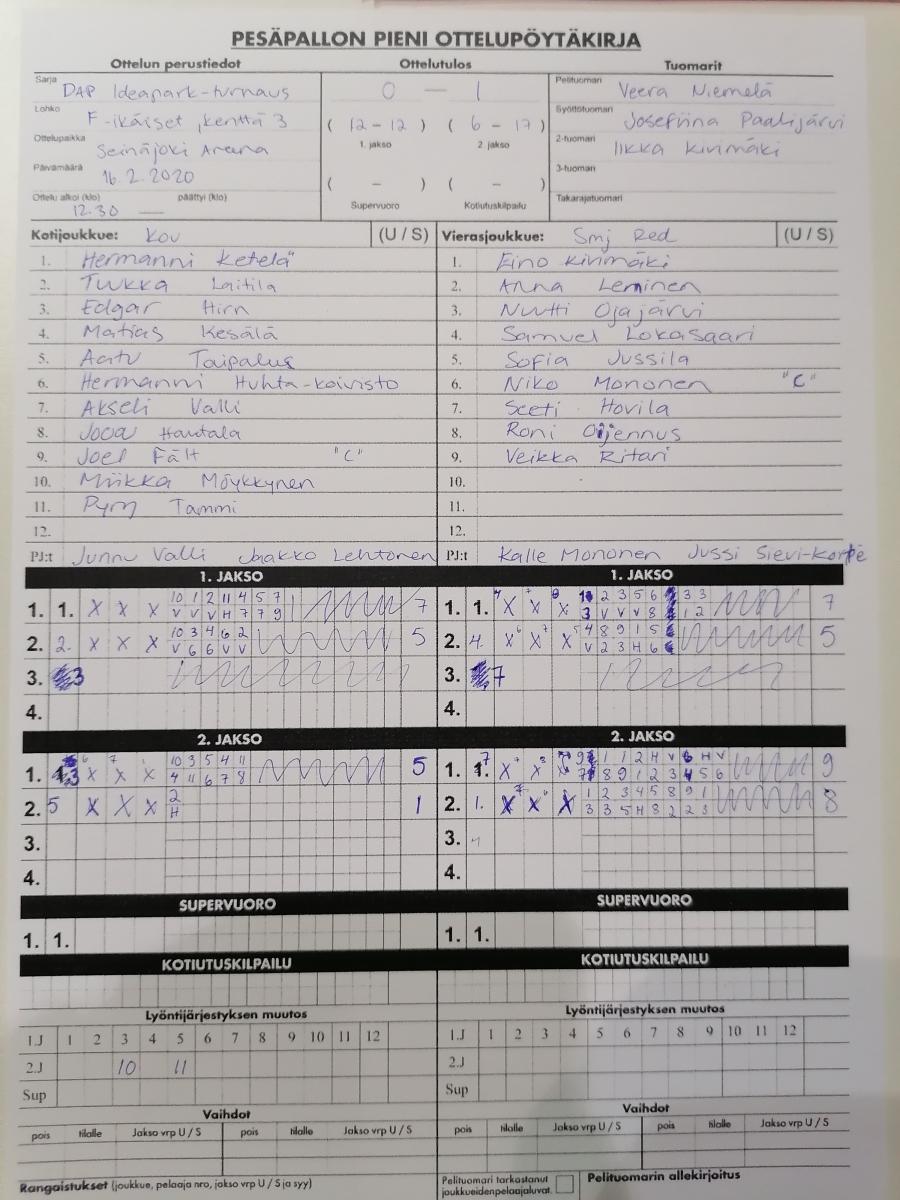 PESÄPALLON PIENI OTTELUPÖYTÄKIRJA
Ottelun perustiedot Ottelutulos Tuomarit
Sarja DAP Ideapark-turnaus
Lohko F-ikäiset, kenttä 3
Ottelupaikka Seinäjoki Areena
Päivämäärä 16.2.2020
Ottelu alkoi (klo) päättyi (klo)
12.30 —
0 — 1
( 12 - 12 ) ( 6 - 17 )
1. jakso 2. jakso
( - ) ( - )
Supervuoro Kotiutuskilpailu
Pelituomari Veera Niemelä
Syöttötuomari Josefiina Paalijärvi
2-tuomari Iikka Kivimäki
3-tuomari
Takarajatuomari
Kotijoukkue: Kou (U / S) Vierasjoukkue: Smj Red (U / S)
1. Hermanni Ketelä 1. Eino Kivimäki
2. Tuukka Laitila 2. Anna Leminen
3. Edgar Hirn 3. Nuutti Ojajärvi
4. Matias Kesälä 4. Samuel Lokasaari
5. Aatu Taipalus 5. Sofia Jussila
6. Hermanni Huhta-koivisto 6. Niko Mononen "C"
7. Akseli Valli 7. Sceti Hovila
8. Jooa Hautala 8. Roni Ojennus
9. Joel Fält "C" 9. Veikka Ritari
10. Miikka Möykkynen 10.
11. Pyry Tammi 11.
12. 12.
PJ:t Junnu Valli Jaakko Lehtonen PJ:t Kalle Mononen Jussi Sievi-Korpe
1. JAKSO 1. JAKSO
1. 1. X X X 10 1 2 11 4 5 7 7
V V V H 7 7 9
1. 1. X X X 2 3 5 6 3 3 7
3 V V V 8 1 2
2. 2. X X X 10 3 4 6 2 5
V 6 6 V V
2. 4. X X X 4 8 9 1 5 5
V 2 3 H 6
3. 3 3. 7
4. 4.
2. JAKSO 2. JAKSO
1. 3 X X X 10 3 5 4 11 5
4 11 6 7 8
1. 7 X X X 9 1 1 2 H V 6 H V 9
7 8 9 1 2 3 4 5 6
2. 5 X X X 2 1
H
2. 1. X X X 1 2 3 4 5 8 9 1 8
3 3 5 H 8 2 2 3
3. 3.
4. 4.
SUPERVUORO SUPERVUORO
1. 1. 1. 1.
KOTIUTUSKILPAILU KOTIUTUSKILPAILU
Lyöntijärjestyksen muutos Lyöntijärjestyksen muutos
1.J 1 2 3 4 5 6 7 8 9 10 11 12 1.J 1 2 3 4 5 6 7 8 9 10 11 12
2.J 10 11 2.J
Sup Sup
Vaihdot Vaihdot
pois tilalle Jakso vrp U / S pois tilalle Jakso vrp U / S pois tilalle Jakso vrp U / S pois tilalle Jakso vrp U / S
Rangaistukset (joukkue, pelaaja nro, jakso vrp U / S ja syy) Pelituomari tarkastanut joukkueidenpelaajaluvat. Pelituomarin allekirjoitus